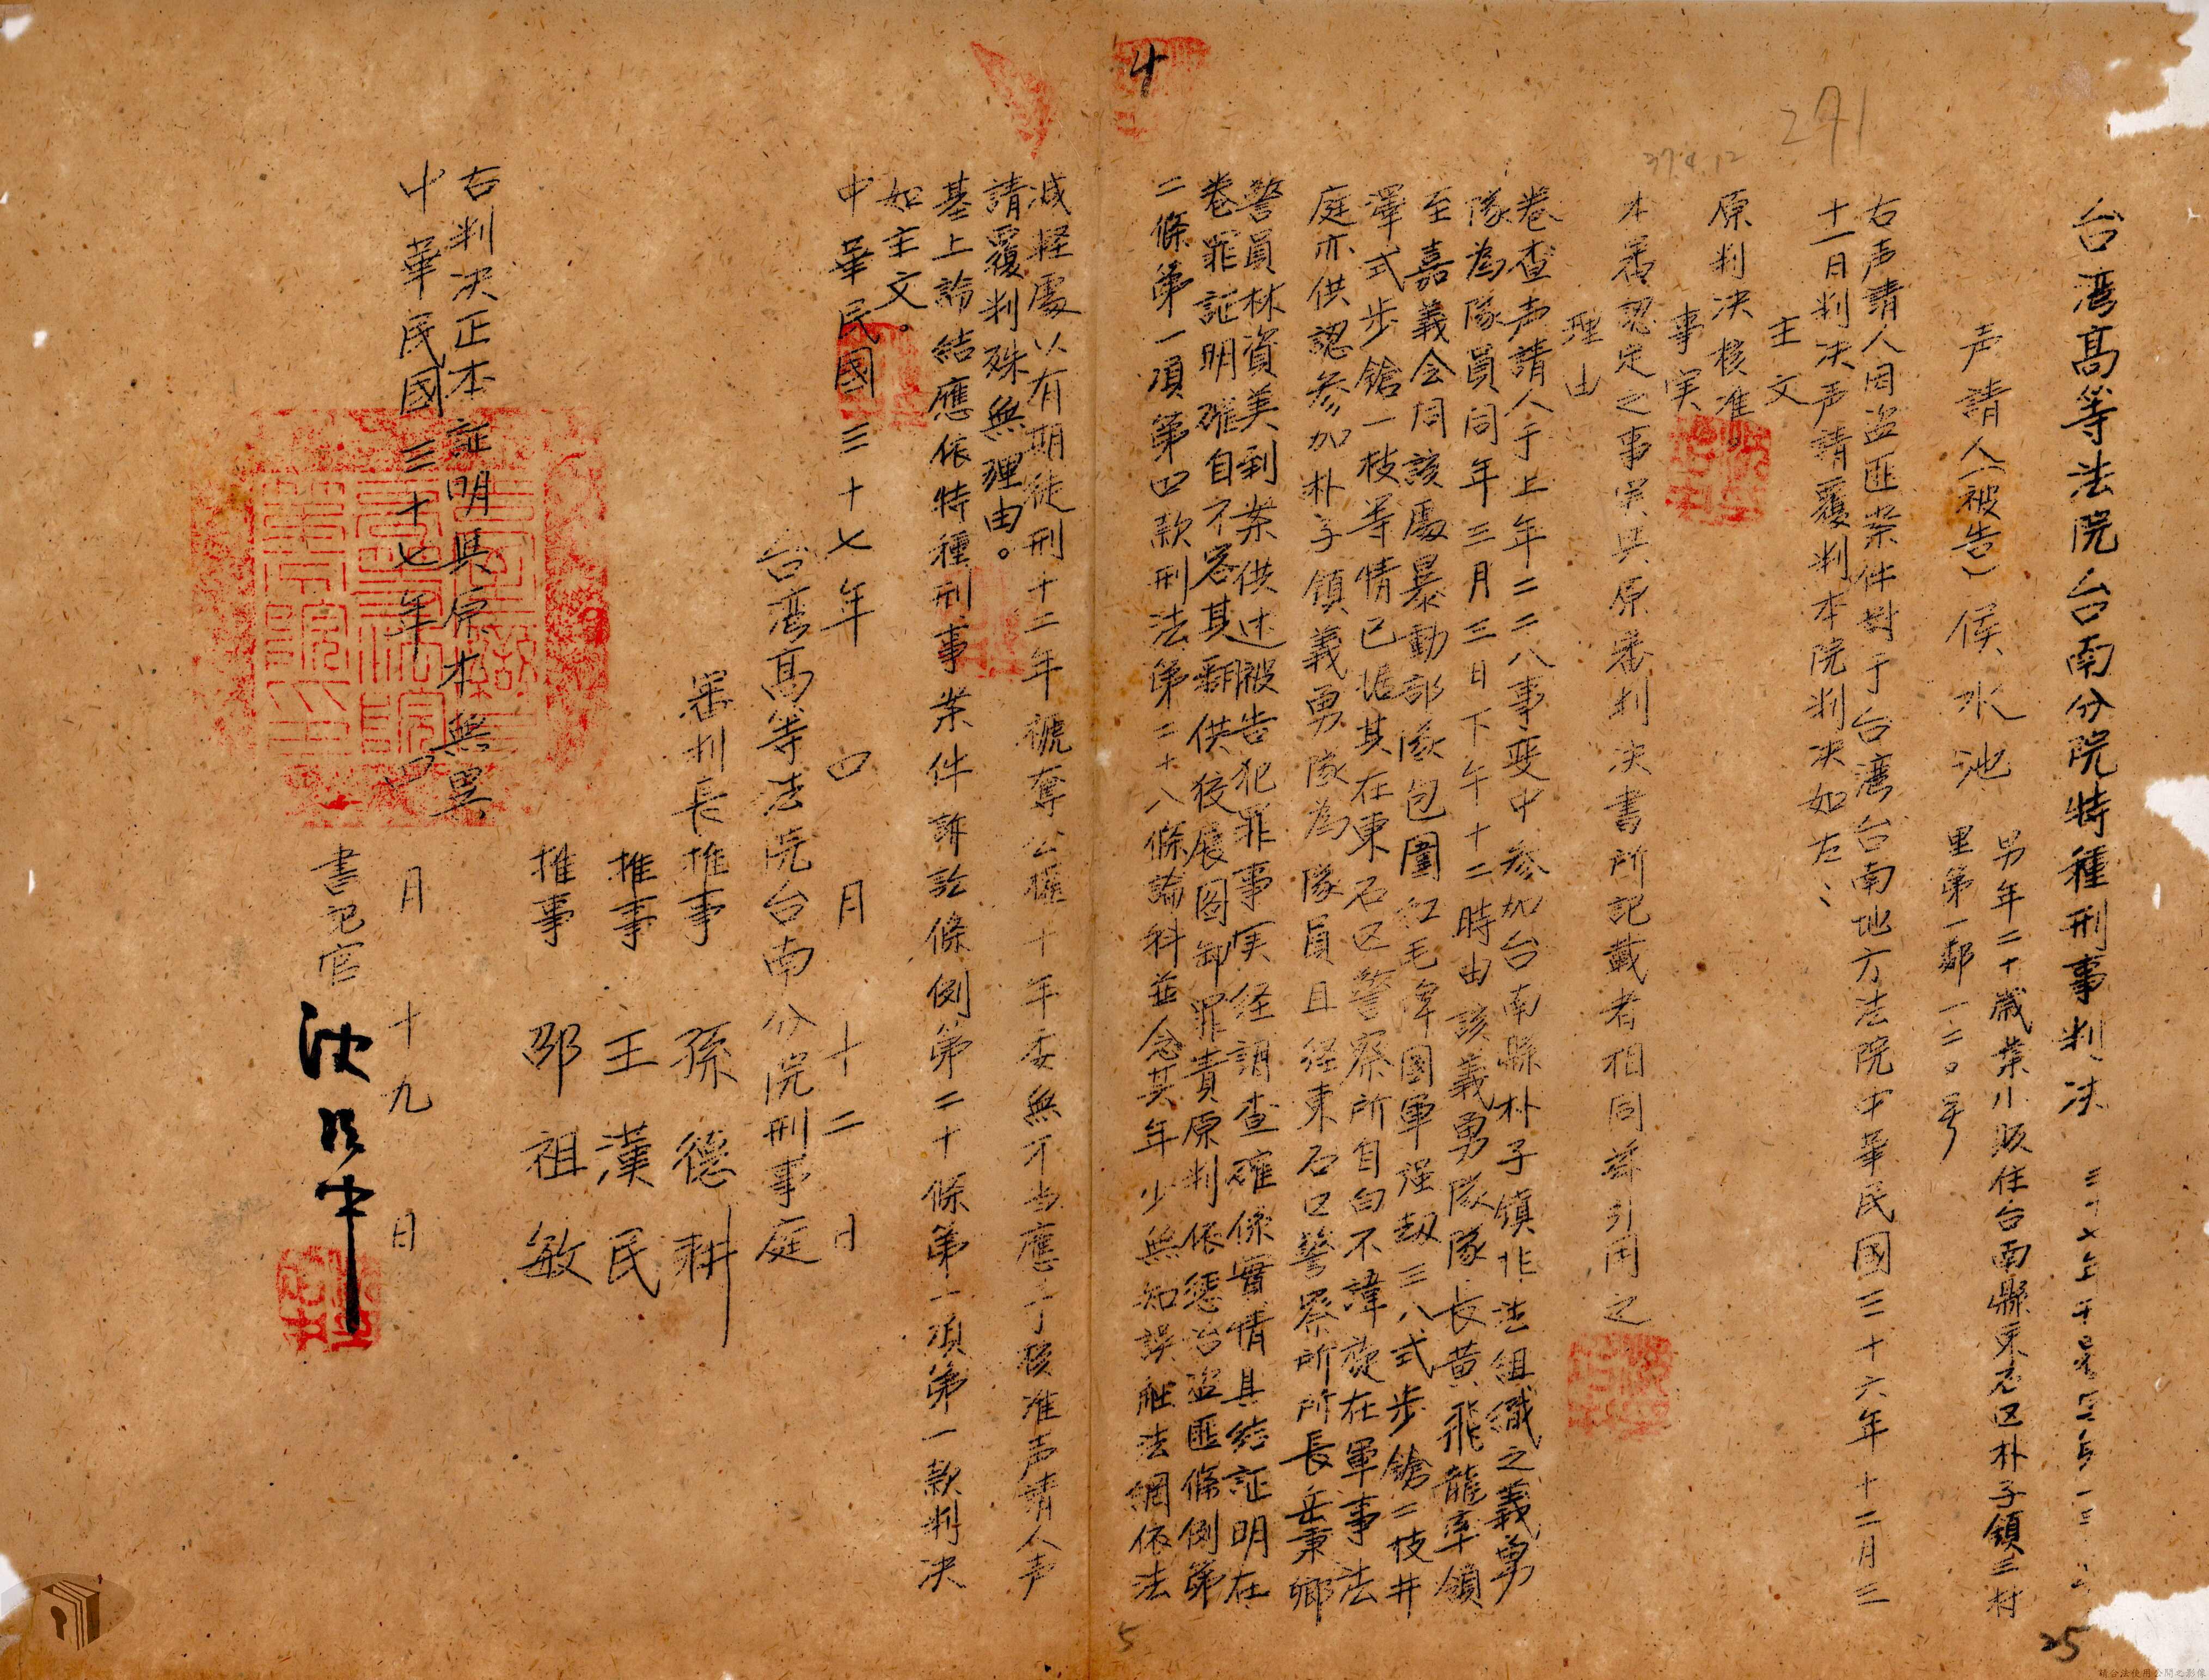 台湾高等法院台南分院特種刑事判决
声請人(被告)侯水池
男年二十歲業小販住台南縣東石区朴子鎮三村
里第一鄰一二〇号
右声請人因盗匪案件對于台湾台南地方法院中華民國三十六年十二月三
十一日判决声請覆判本院判决如左、
主文
原判决核准。
事実
本審認定之事実与原審判决書所記載者相同茲引用之
理由
卷查声請人于上年二二八事変中參加台南縣朴子鎮非法組織之義勇
隊為隊員同年三月三日下午十二時由該義勇隊隊長黄飛龍率領
至嘉義会同該處暴動部隊包圍紅毛埤國軍强刼三八式步鎗二枝井
澤式步鎗一枝等情已據其在東石区警察所自白不諱茲在軍事法
庭亦供認參加朴子鎮義勇隊為隊員且经東石区警察所所長岳秉鄉
警員林資美到案供述被告犯罪事実经調查確係實情具結証明在
卷罪証明確自不容其翻供狡展图卸罪責原判依惩治盗匪條例第
二條第一項第四款刑法第二十八條論科並念其年少無知誤觸法網依法
減軽處以有期徒刑十二年褫奪公權十年委無不当應予核准声請人声
請覆判殊無理由。
基上論結應依特種刑事案件訴訟條例第二十條第一項第一款判决
如主文。
中華民國三十七年四月十二日
台湾高等法院台南分院刑事庭
審判長推事孫德耕
推事王漢民
推事邵祖敏
右判决正本証明與原本無異
中華民國三十七年四月十九日
書記官
4
271
37.4.12
5
25
請合法使用公開之影像